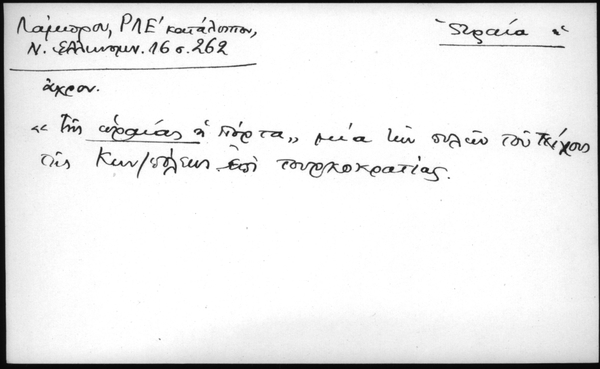 Λάμπρου, ΡΛΕ' κατάλοιπον,
Ν. Ελληνομν. 16 σ. 262
ἄκρον.
«τῆς ὡραίας ἡ πόρτα», μία τῶν πυλῶν τοῦ τείχους
τῆς Κων/πόλεως ἐπὶ τουρκοκρατίας.